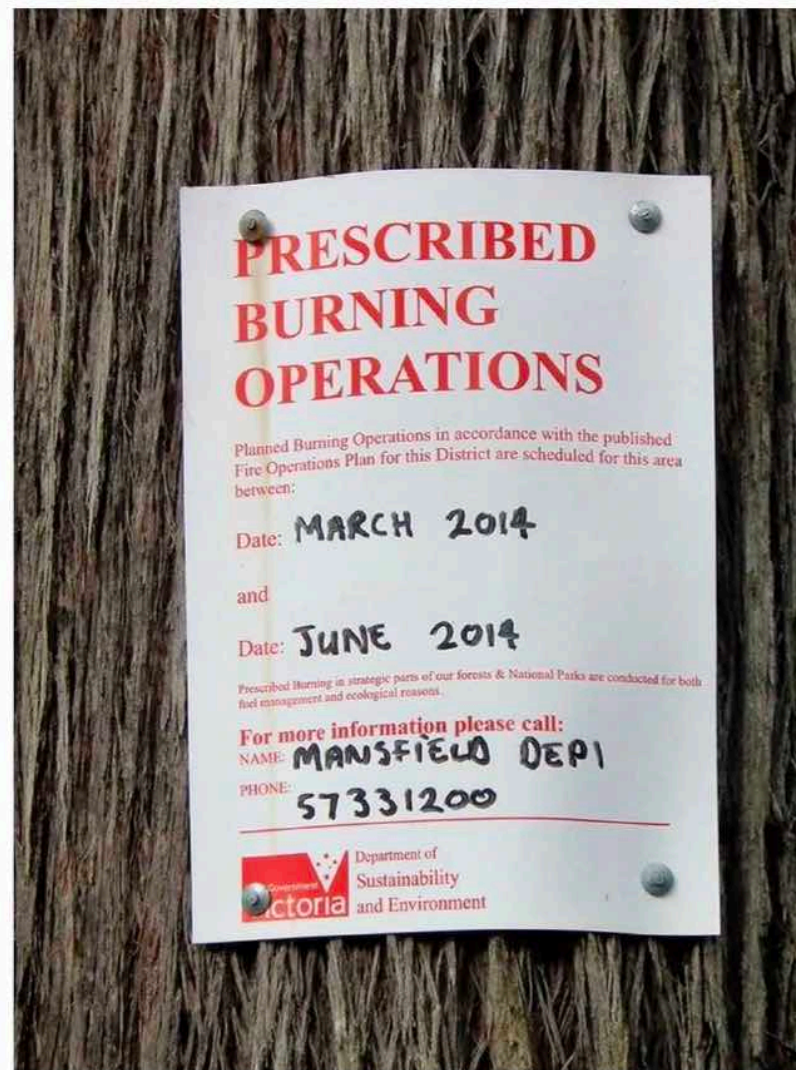 PRESCRIBED
BURNING
OPERATIONS
Planned Burning Operations in accordance with the published
Fire Operations Plan for this District are scheduled for this area
between:
Date: MARCH 2014
and
Date: JUNE 2014
Prescribed Burning in strategic parts of our forests & National Parks are conducted for both
fuel management and ecological reasons.
For more information please call:
NAME: MANSFIELD DEPI
PHONE: 57331200
Government
ctoria
Department of
Sustainability
and Environment